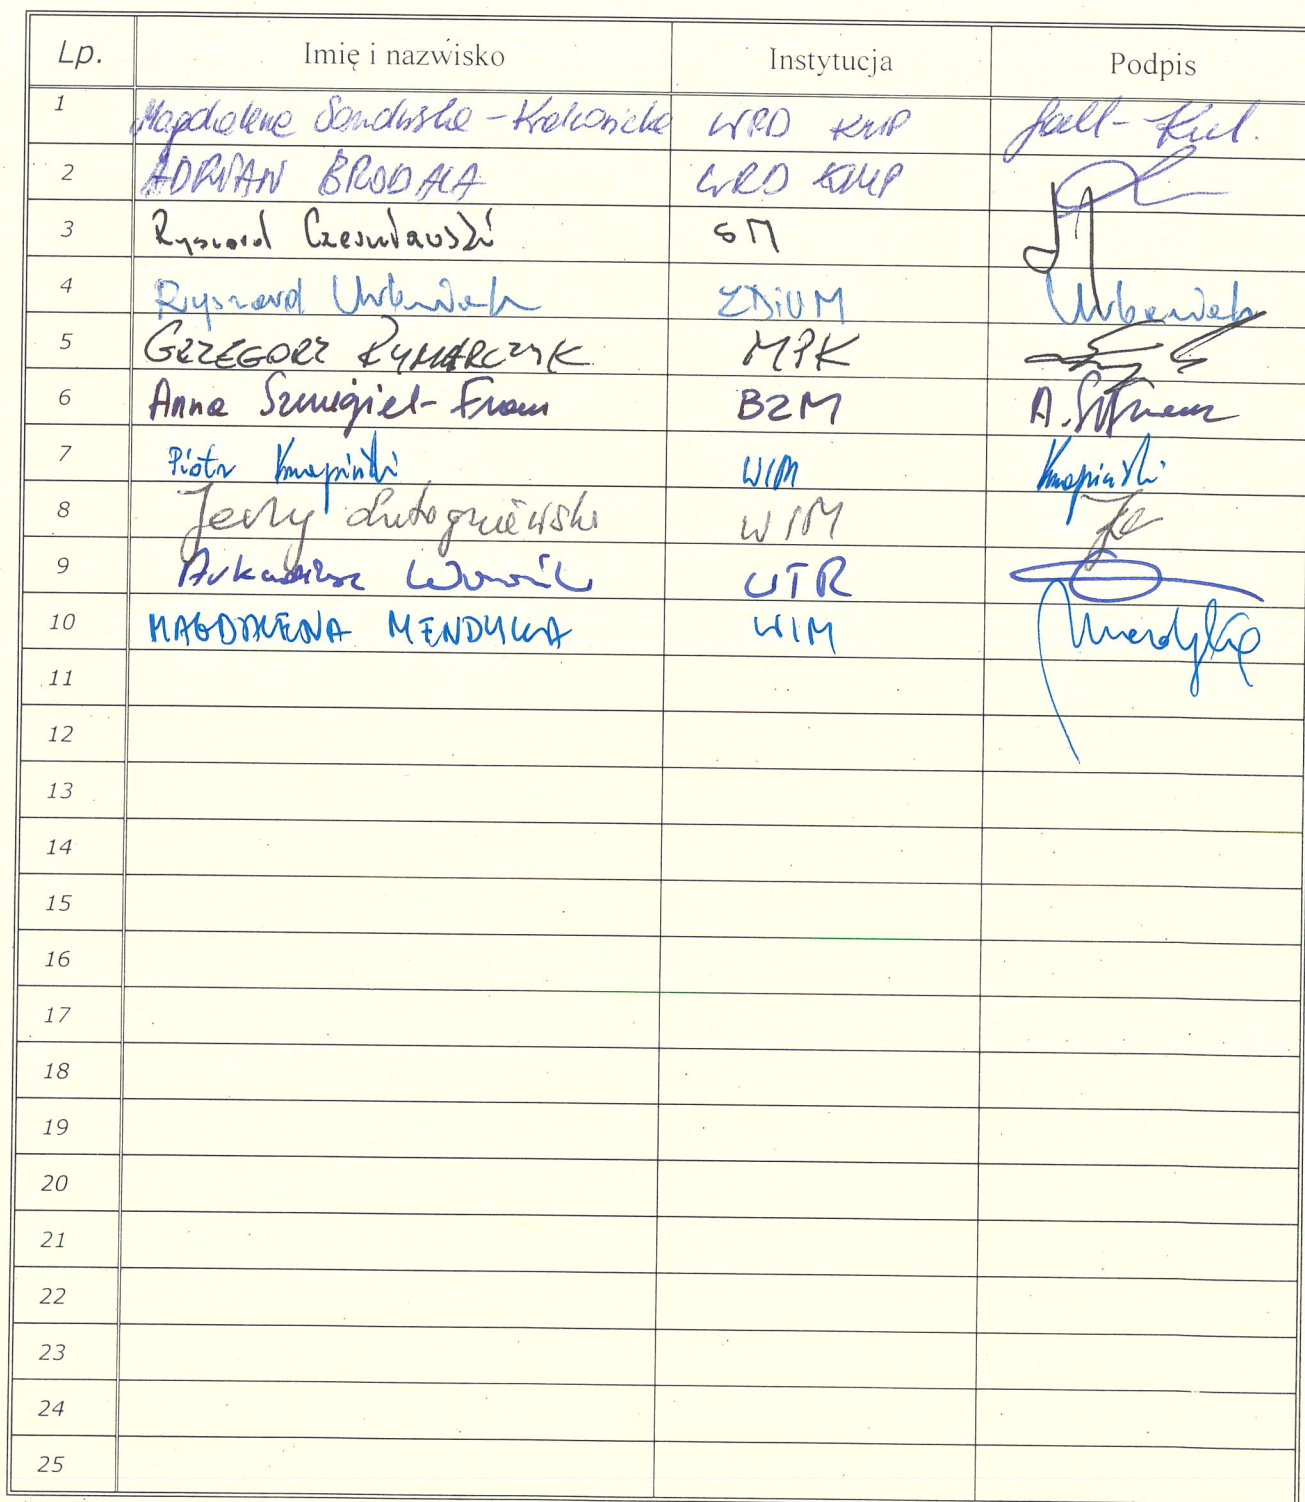 Lp. Imię i nazwisko Instytucja Podpis
1 Magdalena WRD KMP
2 ADRIAN BRODAŁA WRD KMP
3 Ryszard SM
4 Ryszard Urbaniak ZDiUM Urbaniak
5 GRZEGORZ RYMARCZYK MPK
6 Anna Szmigiel-Franz BZM
7 Piotr Knapiński WIM Knapiński
8 Jerzy Lutogniewski WIM
9 Arkadiusz WTR
10 MAGDALENA MENDYKA WIM Mendyka
11
12
13
14
15
16
17
18
19
20
21
22
23
24
25